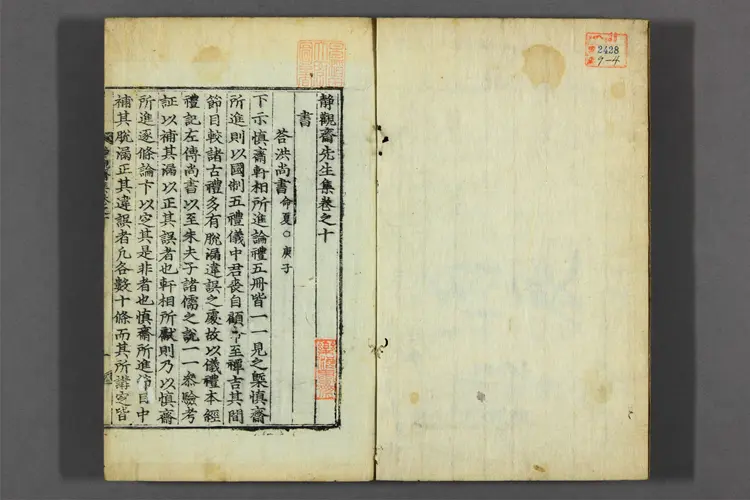 靜觀齋先生集卷之十
書
荅洪尚書命夏○庚子
下示愼齋軒相所進論禮五冊皆一一見之槩愼齋
所進則以國制五禮儀中君喪自顧命至禫吉其間
節目較諸古禮多有脫漏違誤之處故以儀禮本經
禮記左傳尚書以至朱夫子諸儒之說一一叅驗考
証以補其漏以正其誤者也軒相所獻則乃以愼齋
所進逐條論卞以定其是非者也愼齋所進節目中
補其脫漏正其違誤者凡各數十條而其所講定皆
2428
9-4